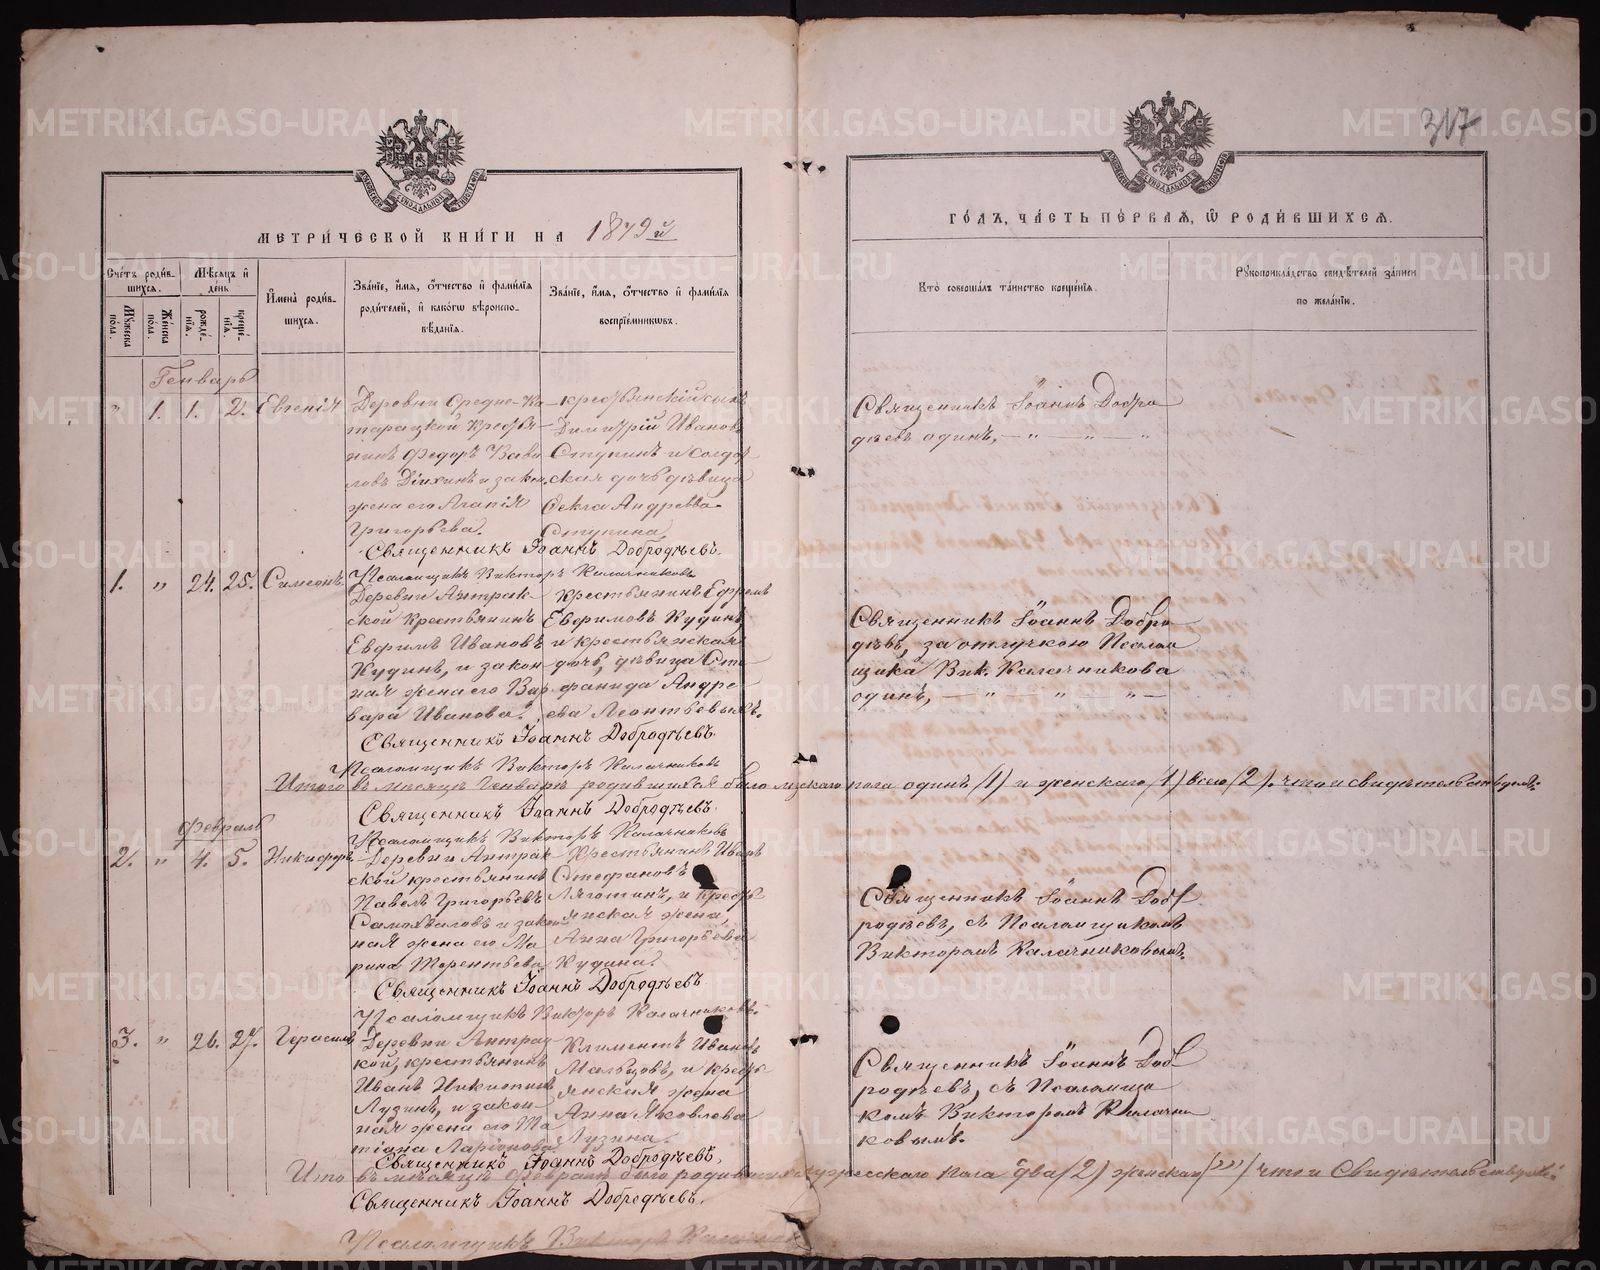 317
МЕТРИ́ЧЕСКОЙ КНИ́ГИ НА 1879й
ГО́ДЪ, ЧА́СТЬ ПЕ́РВАЯ, Ѿ РОДИ́ВШИХСЯ.
Сче́тъ роди́в-
шихся.
Мꙋ́жеска по́ла.
Же́нска по́ла.
Мѣ́сяцъ и҆ де́нь
рожде́-
нїя.
креще́-
нїя.
И҆мена̀ роди́в-
шихся.
Зва́нїе, и҆́мя, ѻ҆́тчество и҆ фами́лїя
роди́телей, и҆ како́гѡ вѣроиспо-
вѣ́данїя.
Зва́нїе, и҆́мя, ѻ҆́тчество и҆ фами́лїя
воспрїе́мникѡвъ.
Кто̀ соверша́лъ та́инство креще́нїя.
Рꙋкоприкла́дство свидѣ́телей за́писи
по жела́нїю.
Генварь
" 1. 1. 2. Евгенія
Деревни Средне-Ка
тарацкой Крестья-
нинъ Федоръ Вави
ловъ и закон.
жена его Агапія
Григорьева.
крестьянскій сынъ
Димитрій Иванов
Ступинъ и солдат
ская дочь девица
Фекла Андреева
Ступина
Священникъ Іоаннъ Добро
деевъ одинъ, — " — " — "
Священникъ Іоаннъ Добродѣевъ.
Псаломщикъ Викторъ Калачниковъ
1. " 24. 25. Симеонъ.
Деревни Антрак
ской Крестьянинъ
Евфимъ Ивановъ
Кудинъ, и закон
ная жена его Вар
вара Иванова.
крестьянинъ Ефремъ
Евфимовъ Кудинъ,
и крестьянская
дочь, девица Сте
фанида Андре
ева Леонтьевыхъ.
Священникъ Іоаннъ Добро
дѣевъ, за отлучкою Псалом
щика Вик. Калачникова
одинъ, — " " " —
Священникъ Іоаннъ Добродѣевъ.
Псаломщикъ Викторъ Калачниковъ
Итого въ месяце Генваре родившихся было мужскаго пола одинъ (1) и женскаго (1) всего (2). что и свидетельствуемъ:
Священникъ Іоаннъ Добродѣевъ.
Псаломщикъ Викторъ Калачниковъ
Февраль
2. " 4. 5. Никифоръ
Деревни Антрак
ской крестьянинъ
Павелъ Григорьевъ
Самохваловъ и закон
ная жена его Ма
рина Терентьева
Крестьянинъ Иванъ
Стефановъ
и кресть
янская жена,
Анна Григорьева
Кудина.
Священникъ Іоаннъ Доб
родѣевъ, съ Псаломщикомъ
Викторомъ Калачниковымъ.
Священникъ Іоаннъ Добродѣевъ.
Псаломщикъ Викторъ Калачниковъ.
3. " 26. 27. Герасимъ
Деревни Антрац
кой, крестьянинъ
Иванъ Никитинъ
Лузинъ, и закон
ная жена его Та
тіана Ларіонова
Климентъ Ивановъ
Мальцовъ, и кресть
янская жена
Анна Яковлева
Лузина.
Священникъ Іоаннъ Доб
родѣевъ, съ Псаломщи
комъ Викторомъ Калачни
ковымъ.
Священникъ Іоаннъ Добродѣевъ,
въ месяце Феврале было родившихся мужескаго пола два (2) женскаго (") что и Свидетельствуемъ:
Священникъ Іоаннъ Добродѣевъ.
Псаломщикъ Викторъ
METRIKI.GASO-URAL.RU